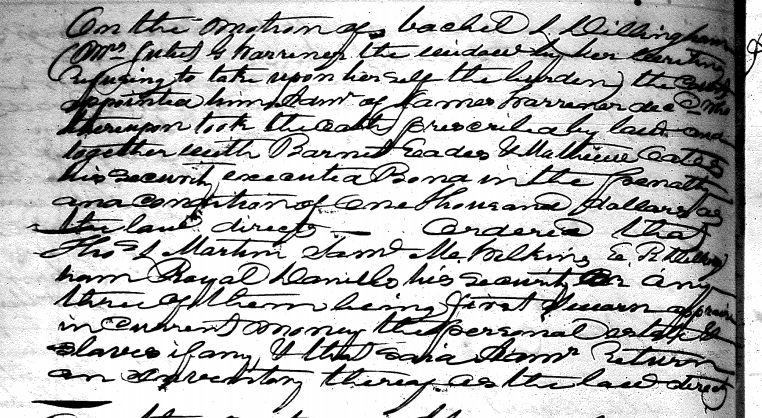 On the motion of Vachel L Dillingham
(Mrs Juliet G Warriner the widow by her writing
refusing to take upon herself the burden) the Court
appointed him Admr of James Warriner decd Who
thereupon took the oath prescribed by law and
together with Barnet Eades & Mathew Oates
his security executed a Bond in the penalty
and condition of One Thousand dollars as
the law directs — Ordered that
Thos L Martin Saml McWilkins E. R
ham Royal Daniel his security or any
three of them being first sworn appraise
in Current money the personal estate &
slaves if any & that said Admr return
an inventory thereof as the law direct